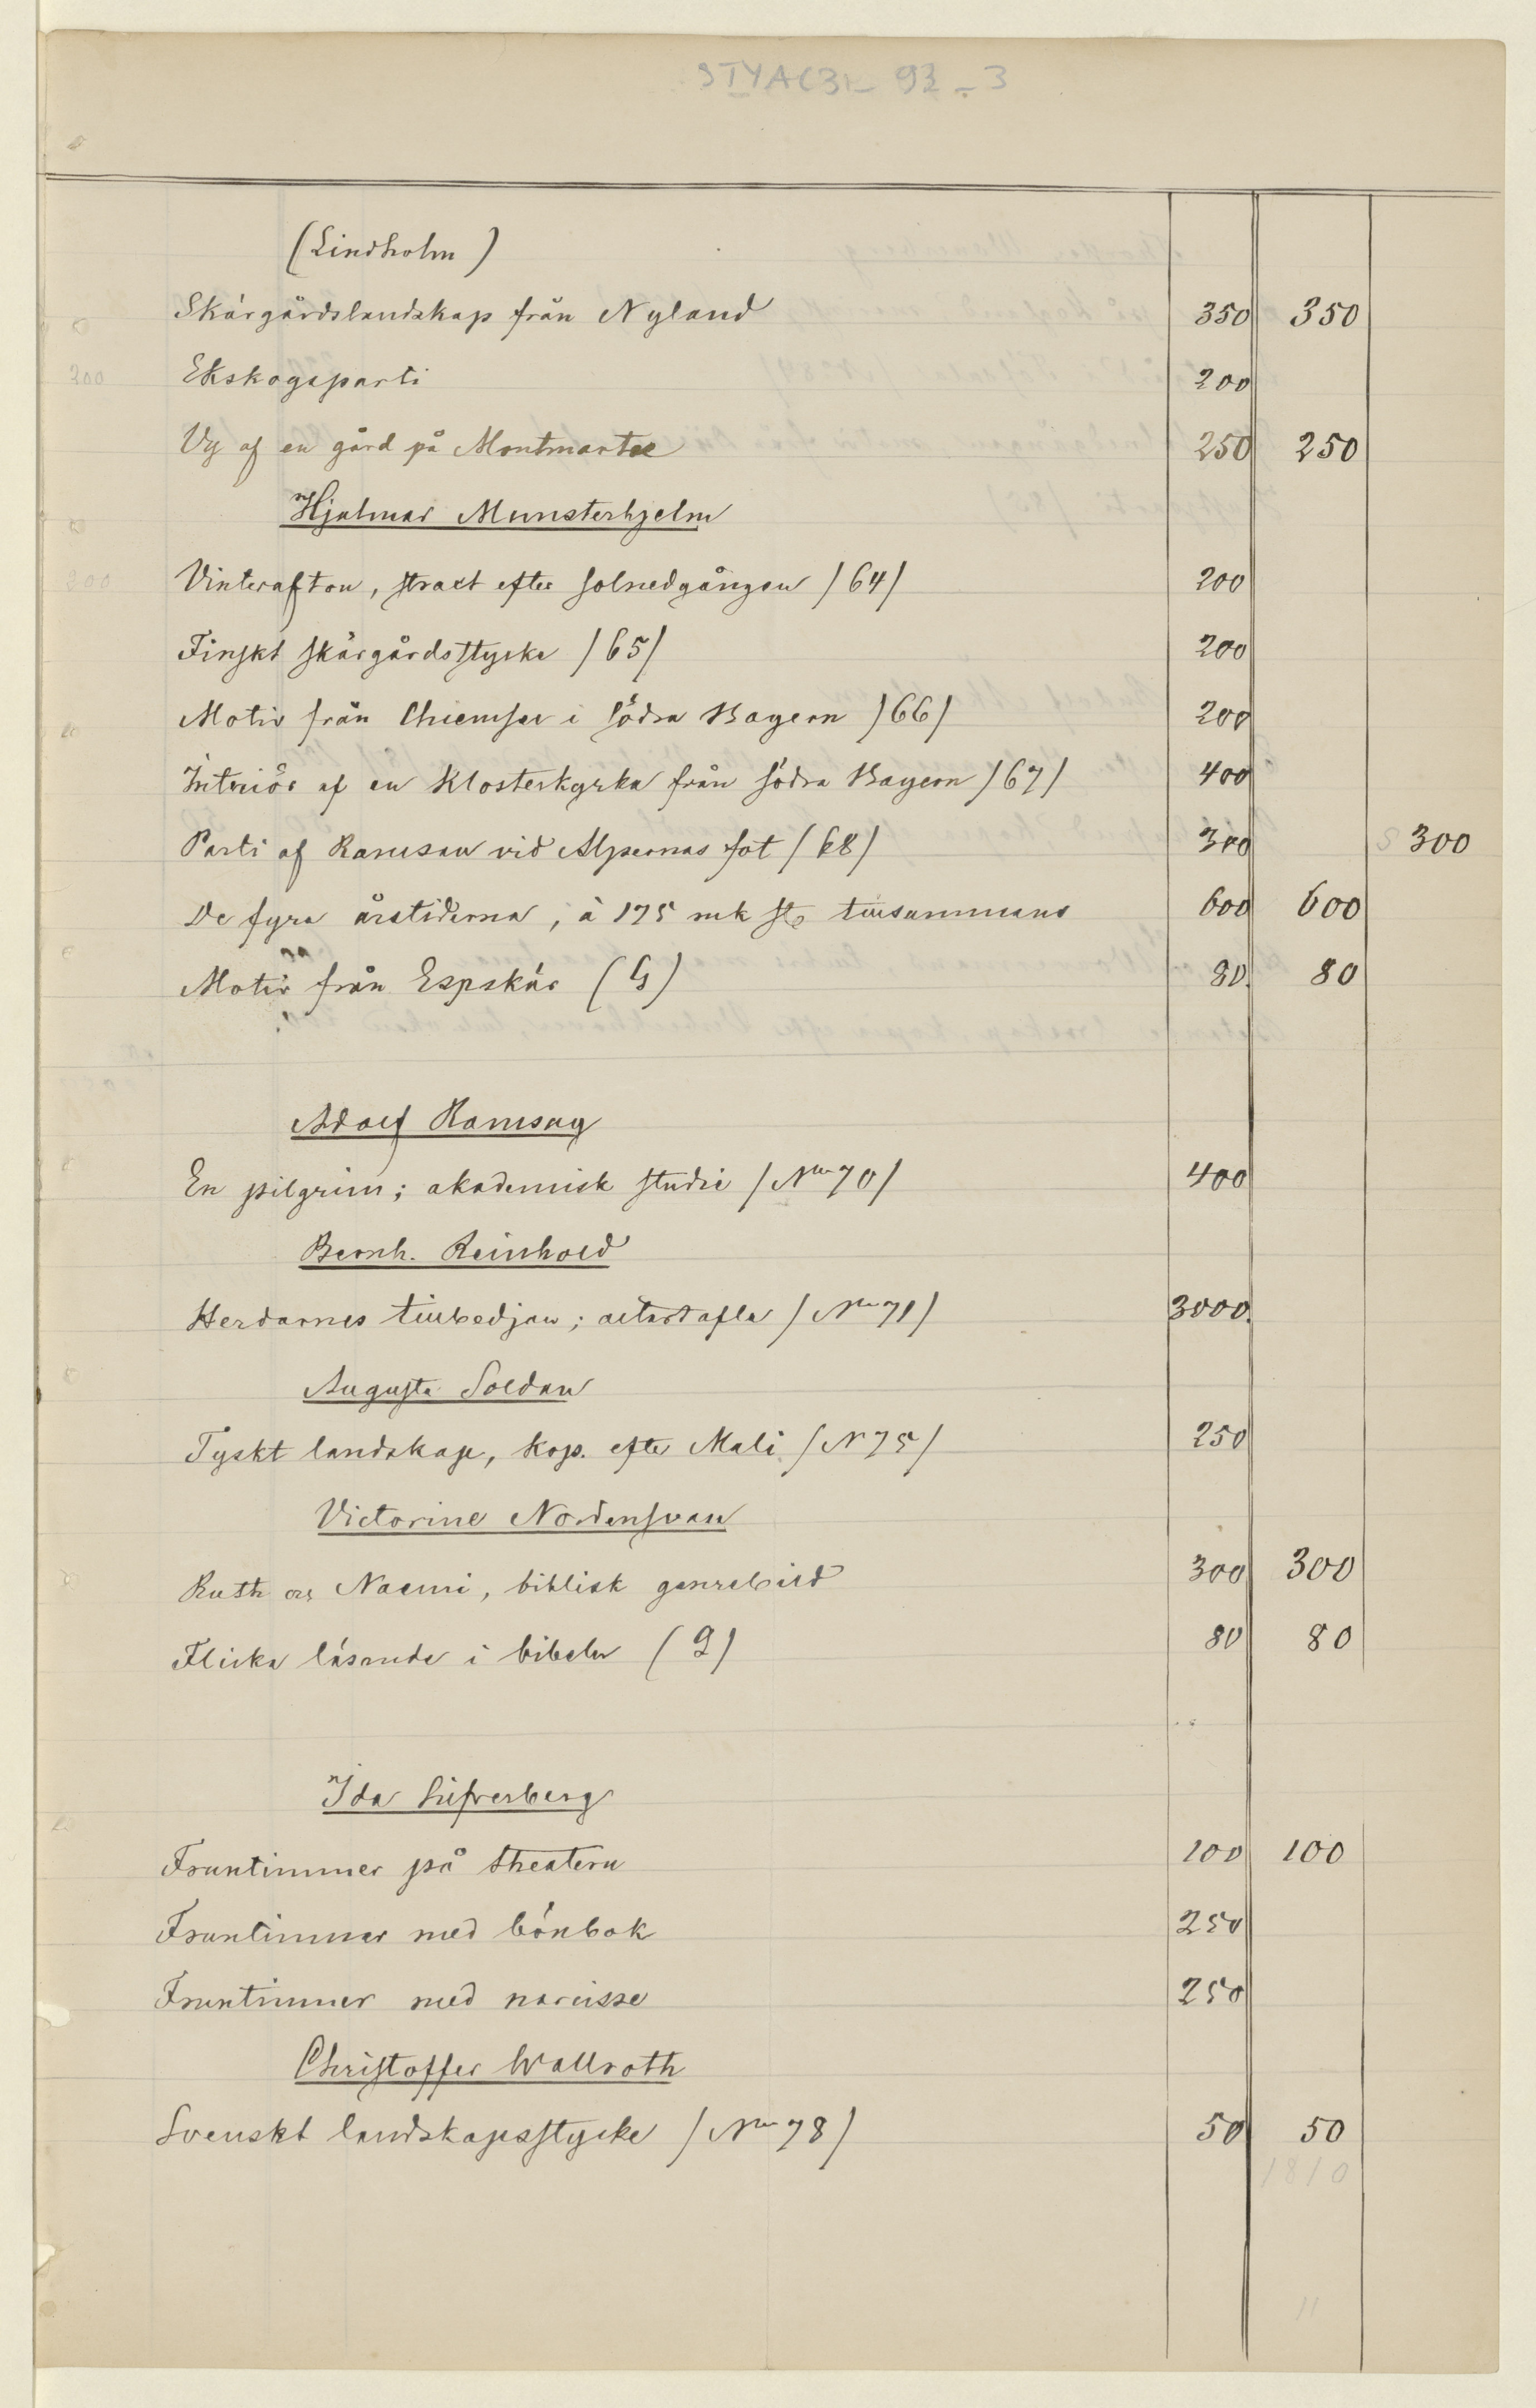 (Lindholm)
Skärgårdslandskap från Nyland 350 350
Ekskogsparti 200
Vy af en gård på Montmartre 250 250
Hjalmar Munsterhjelm
Vinterafton, straxt efter solnedgången /64/ 200
Finskt skärgårdsstycke /65/ 200
Motiv från Chiemsee i södra Bayern /66/ 200
Interiör af en Klosterkyrka från södra Bayern /67/ 400
Parti af Ramsau vid Alpernas fot /68/ 300 300
De fyra årstiderna, à 175 mk st. tillsammans 600 600
Motiv från Espskär (G) 80. 80
Adolf Ramsay
En pilgrim; akademisk studie /No 70/ 400
Bernh. Reinhold
Herdarnes tillbedjan; altartafla /No 71/ 3000.
Augusta Soldan
Tyskt landskap, kop. efter Mali /N 75/ 250
Victorine Nordensvan
Ruth och Naemi, biblisk genrebild 300 300
Flicka läsande i bibeln (9) 80 80
Ida Silfverberg
Fruntimmer på theatern 100 100
Fruntimmer med bönbok 250
Fruntimmer med narcisse 250
Christoffer Wallroth
Svenskt landskapsstycke /No 78/ 50 50
1810
11